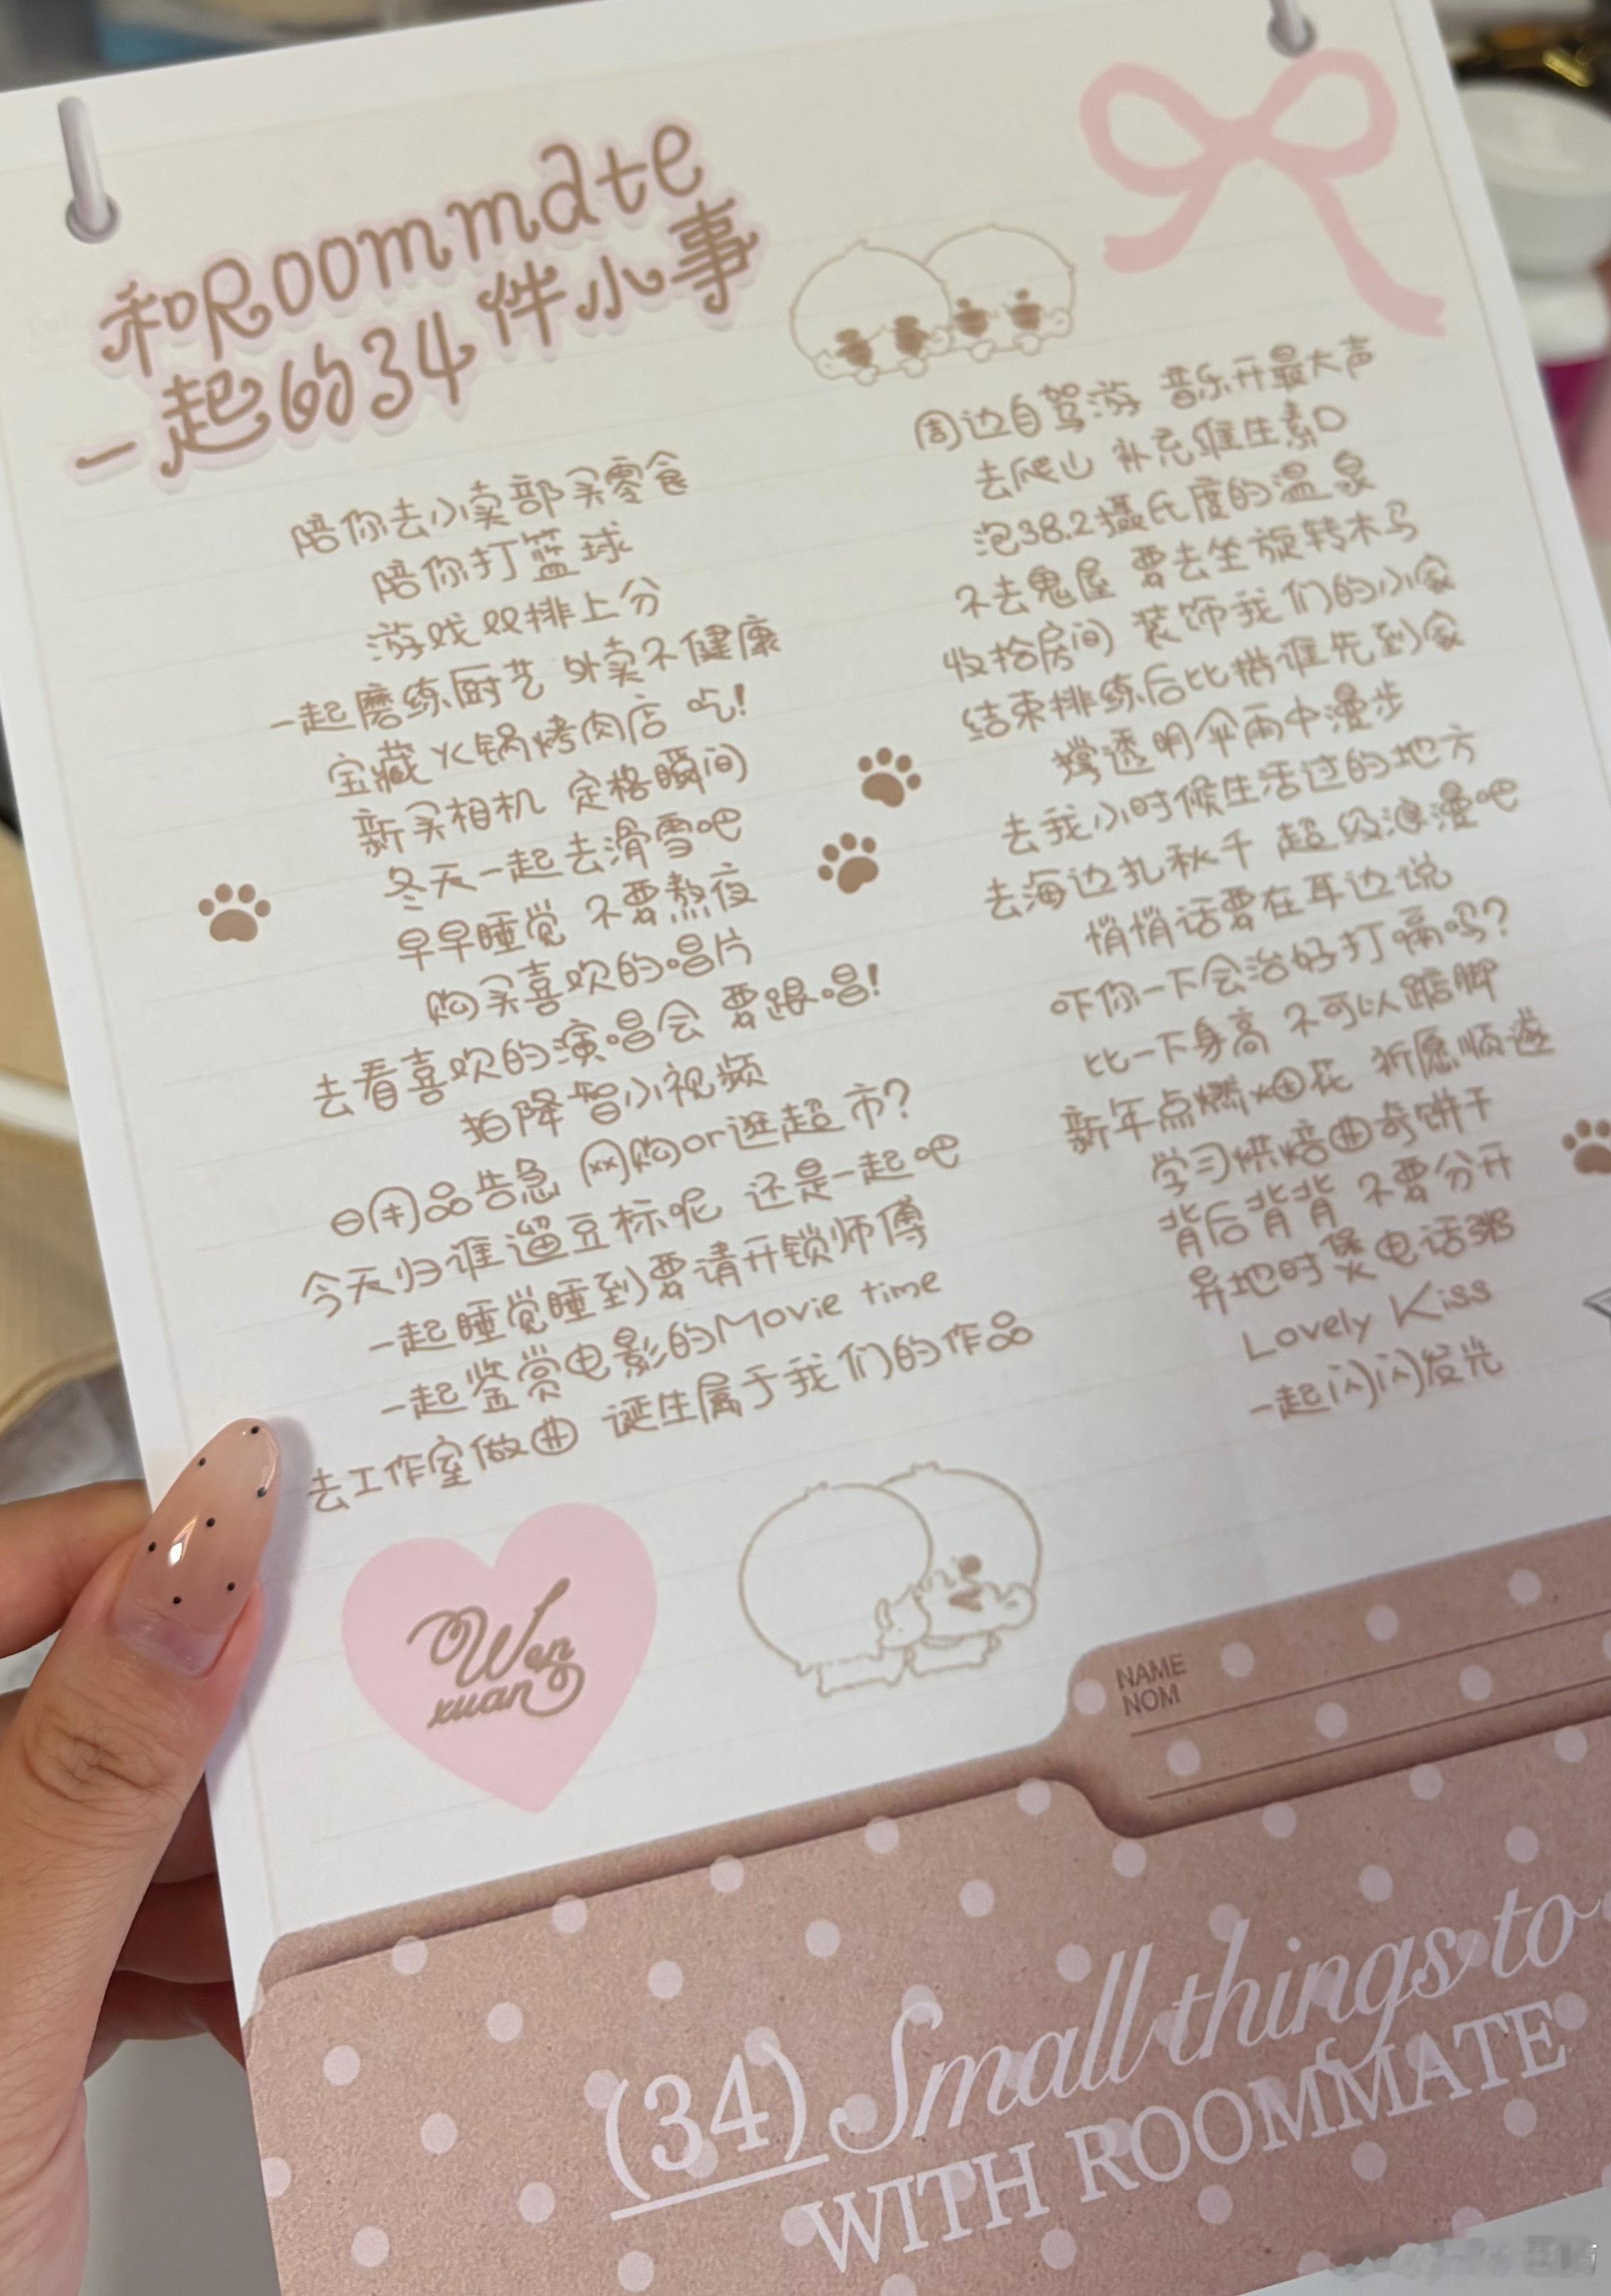 和Roommate
一起的34件小事
陪你去小卖部买零食
陪你打篮球
游戏双排上分
一起磨练厨艺 外卖不健康
宝藏火锅烤肉店 吃!
新买相机 定格瞬间
冬天一起去滑雪吧
早早睡觉 不要熬夜
购买喜欢的唱片
去看喜欢的演唱会 要跟唱!
拍降智小视频
日用品告急 网购or逛超市?
今天归谁遛豆标呢 还是一起吧
一起睡觉睡到要请开锁师傅
一起鉴赏电影的Movie time
去工作室做曲 诞生属于我们的作品
周边自驾游 音乐开最大声
去爬山 补充维生素D
泡38.2摄氏度的温泉
不去鬼屋 要去坐旋转木马
收拾房间 装饰我们的小家
结束排练后比拼谁先到家
撑透明伞雨中漫步
去我小时候生活过的地方
去海边扎秋千 超级浪漫吧
悄悄话要在耳边说
吓你一下会治好打嗝吗?
比一下身高 不可以踮脚
新年点燃烟花 祈愿顺遂
学习烘焙曲奇饼干
背后背背 不要分开
异地时煲电话粥
Lovely Kiss
一起闪闪发光
Wen
xuan
NAME
NOM
(34) Small things to
WITH ROOMMATE